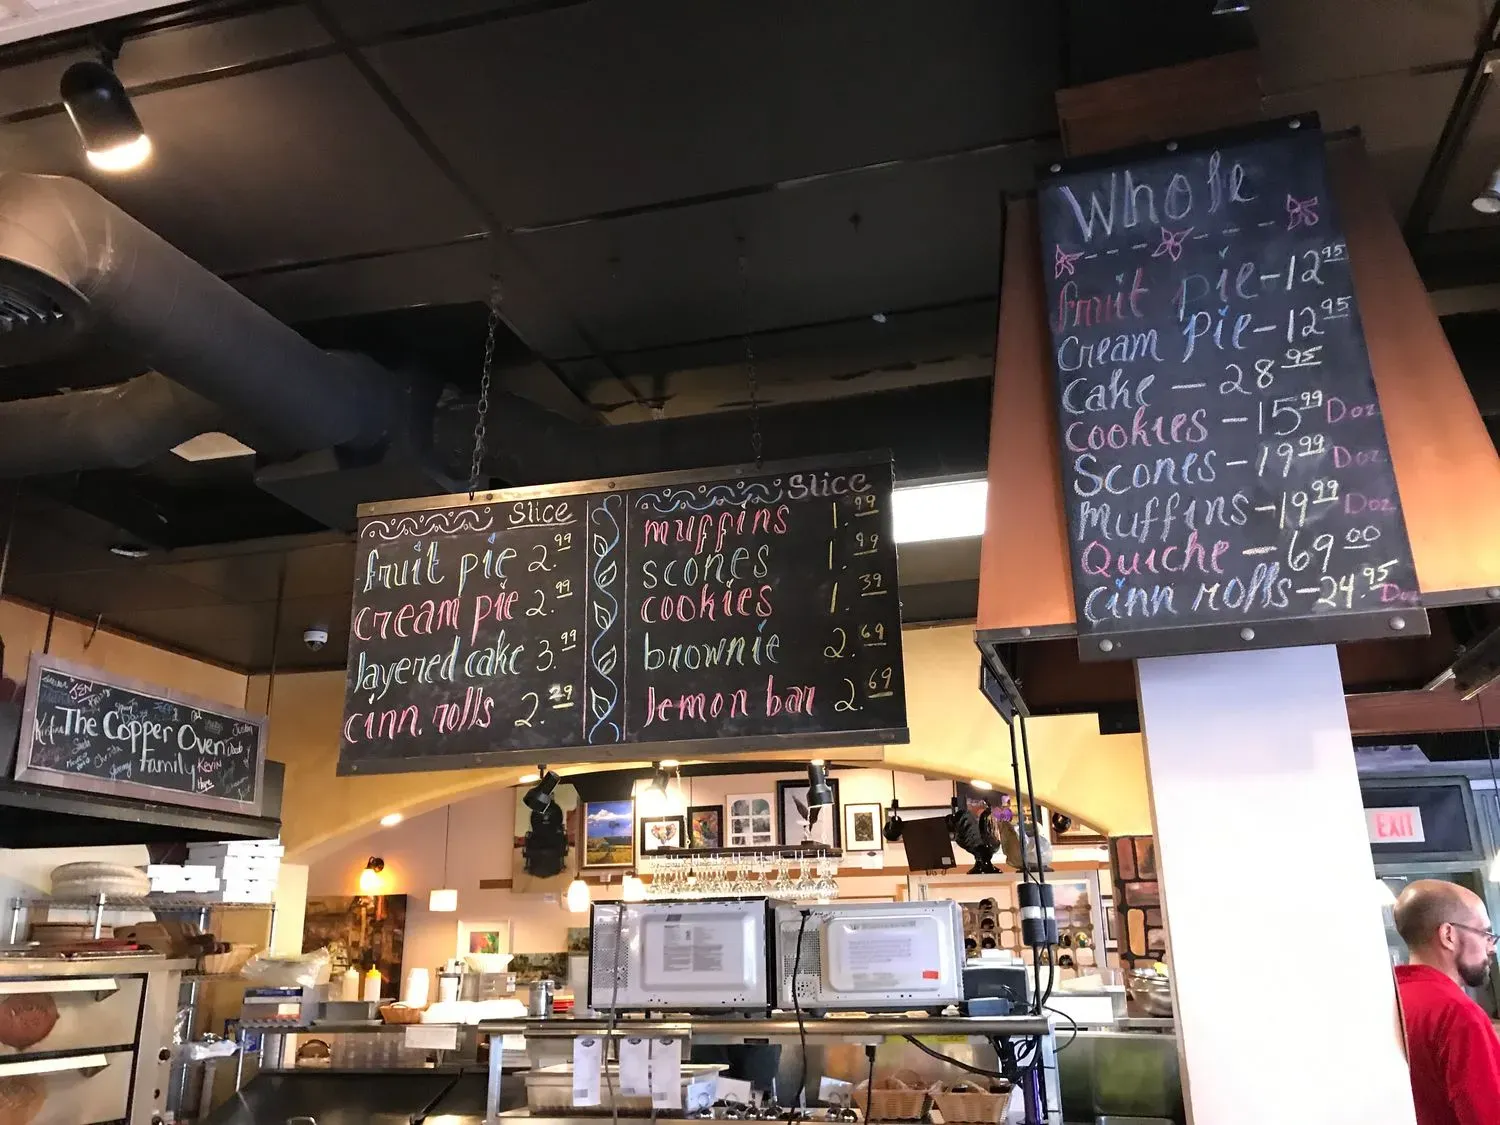 Slice
fruit pie 2.99
cream pie 2.99
layered cake 3.99
cinn. rolls 2.29
Slice
muffins 1.99
scones 1.99
cookies 1.39
brownie 2.69
lemon bar 2.69
Whole
fruit pie - 12 95
Cream Pie - 12 95
Cake - 28 95
Cookies - 15 99 Doz
Scones - 19 99 Doz
Muffins - 19 99 Doz
Quiche - 69 00
cinn rolls - 24.95 Doz
JEN
The Copper Oven
Family
Justin
Kevin
Jeremy
EXIT